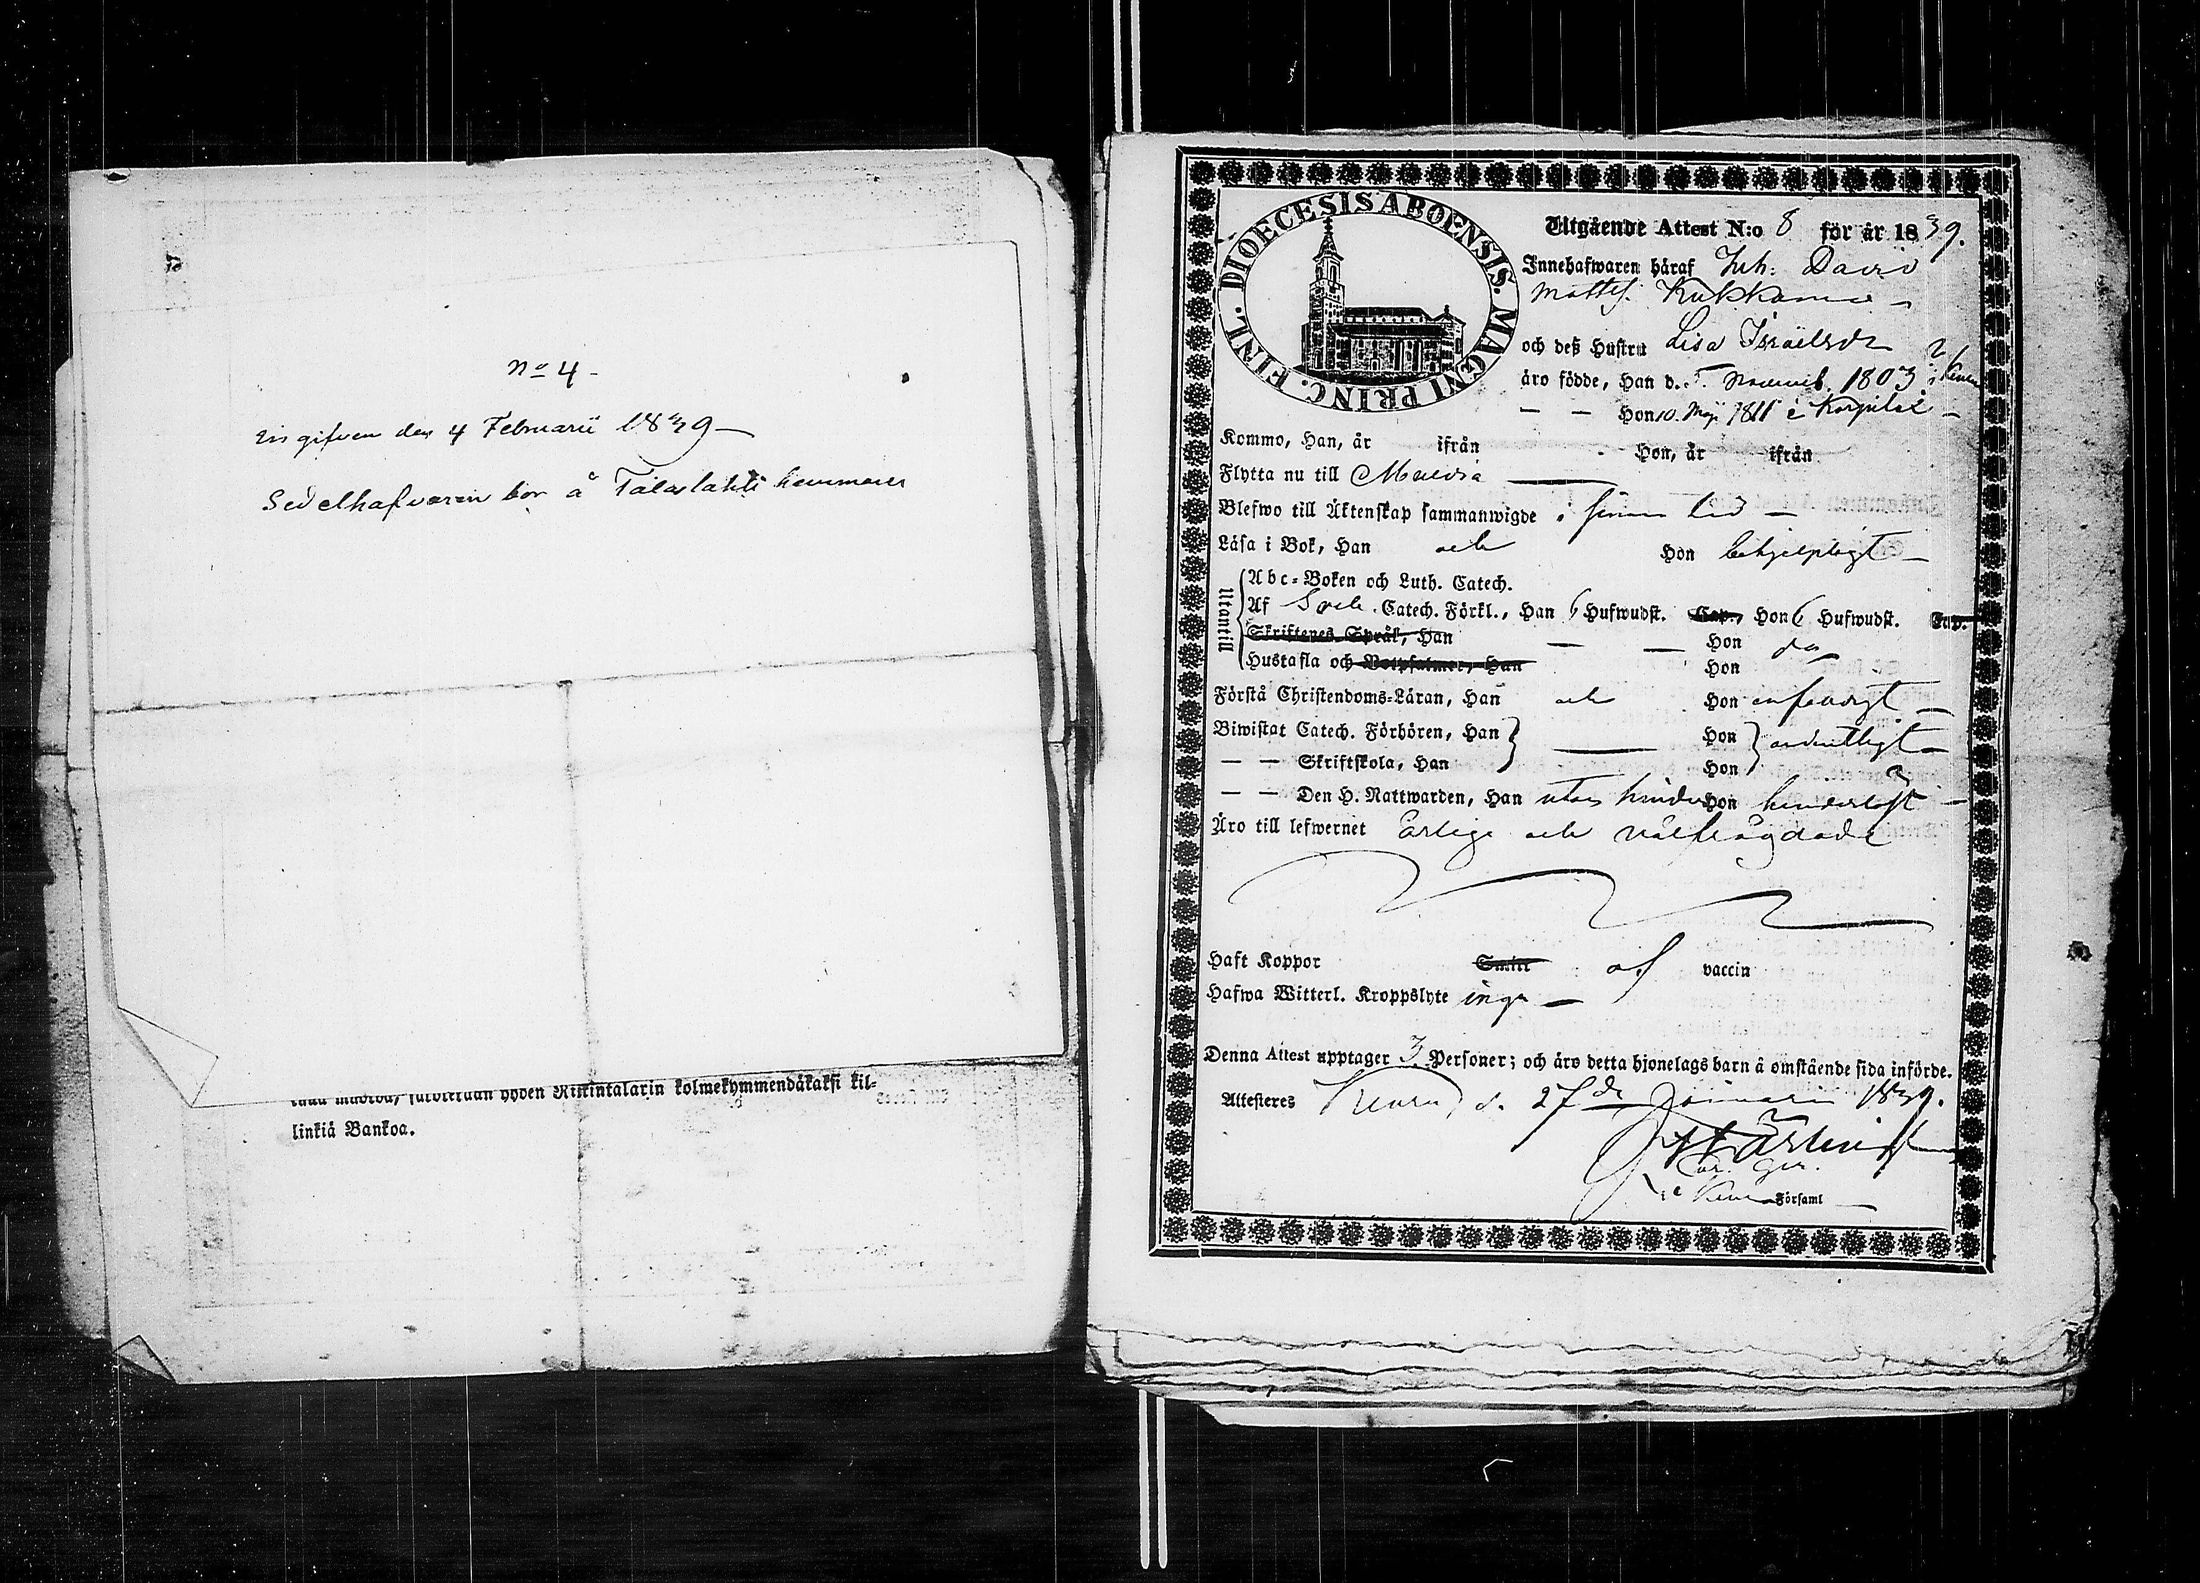 No 4 -
Ingifven den 4 Februarii 1839 —
Sedelhafvaren bor å Talaslahti hemmanet
linkiä Bankoa.
kolmekymmendäkaksi kil=
DIOECESIS ABOENSIS. MAGNI PRINC. FINL.
Utgående Attest N:o 8 för år 1839.
Innehafwaren häraf Joh: David
Mattss. Kukkanie –
och deß Hustru Lisa Israëlsdr
äro födde, Han d. Novemb. 1803 i Keuru
— — Hon 10. Maji 1811 i Korpilax —
Kommo, Han, år ifrån Hon, år ifrån
Flytta nu till Multia —
Blefwo till Äktenskap sammanwigde i sinom tid —
Läsa i Bok, Han och Hon behjelpligt —
Utantill
Abc=Boken och Luth. Catech.
Af Sveb. Catech. Förkl., Han 6 Hufwudst. Cap., Hon 6 Hufwudst. Cap.
Skriftenes Språk, Han — — Hon do
Hustafla och Botpsalmer, Han Hon
Förstå Christendoms=Läran, Han och Hon enfaldigt —
Biwistat Catech. Förhören, Han } — Hon } ordentligt —
— — Skriftskola, Han Hon
— — Den H. Nattwarden, Han utan hinder Hon hinderlöst —
Äro till lefwernet ärlige och välfrägdade
Haft Koppor Smitt af vaccin
Hafwa Witterl. Kroppslyte inga —
Denna Attest upptager 3 Personer; och äro detta hjonelags barn å omstående sida införde.
Attesteres Keuru d. 27de Januarii 1839.
i Keuru Församl —